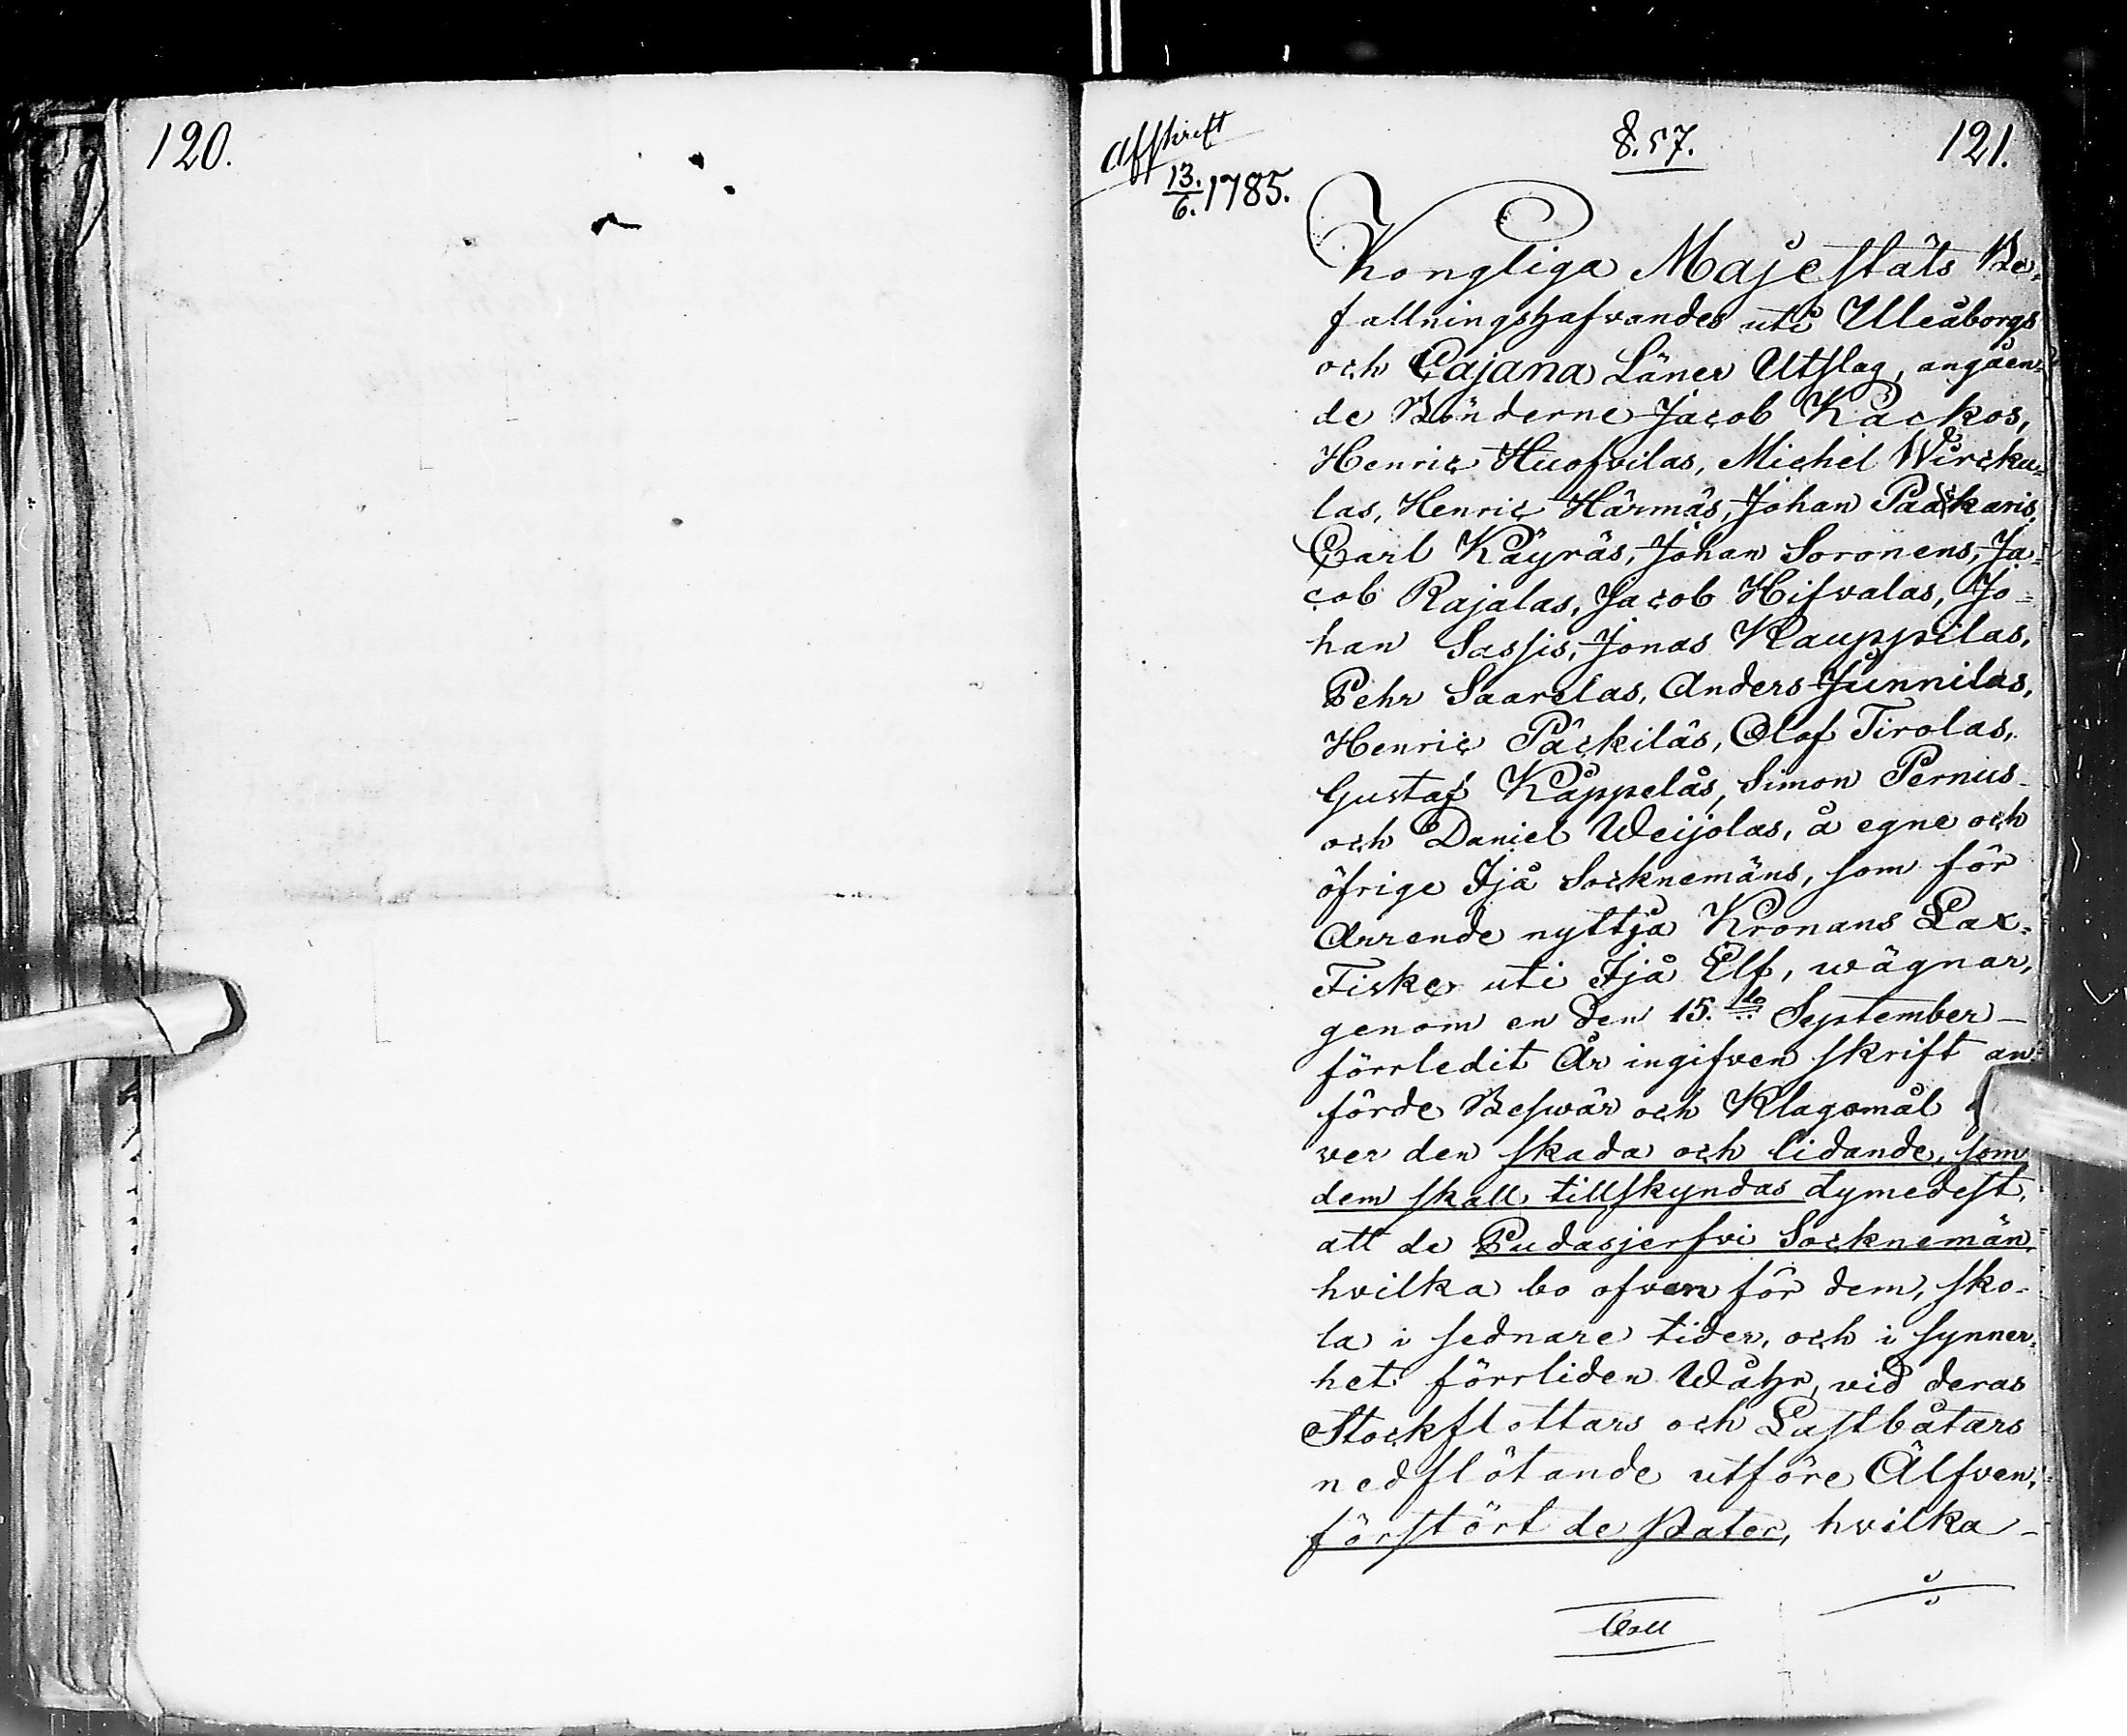 120.
Afskrift
13./6. 1785.
8.57.
121.
Kongliga Majestäts Be-
fallningshafvandes uti Uleåborgs
och Cajana Läner Utslag, angåen-
de Bönderne Jacob Kackos,
Henric Huofvilas, Michel Wircku-
las, Henric Härmäs, Johan Paackaris,
Carl Käyräs, Johan Soronens, Ja-
cob Rajalas, Jacob Hifvalas, Jo-
han Sassis, Jonas Kauppilas,
Pehr Saarelas, Anders Junnilas,
Henric Päckiläs, Olof Tirolas,
Gustaf Kåppelås, Simon Pernus
och Daniel Weijolas, å egne och
öfrige Ijå Socknemäns, som för
Arrende nyttja Kronans Lax-
Fiske uti Ijå Elf, wägnar,
genom en den 15.de September
förrledit År ingifven skrift an-
förde Beswär och Klagomål
ver den skada och lidande, som
dem skall tillskyndas dymedest,
att de Pudasjerfvi Socknemän,
hvilka bo ofvan för dem, sko-
la i sednare tider, och i synner-
het förrliden Wåhr, vid deras
Stockflottars och Lastbåtars
nedflötande utföre Älfven,
förstört de Pater, hvilka
Coll